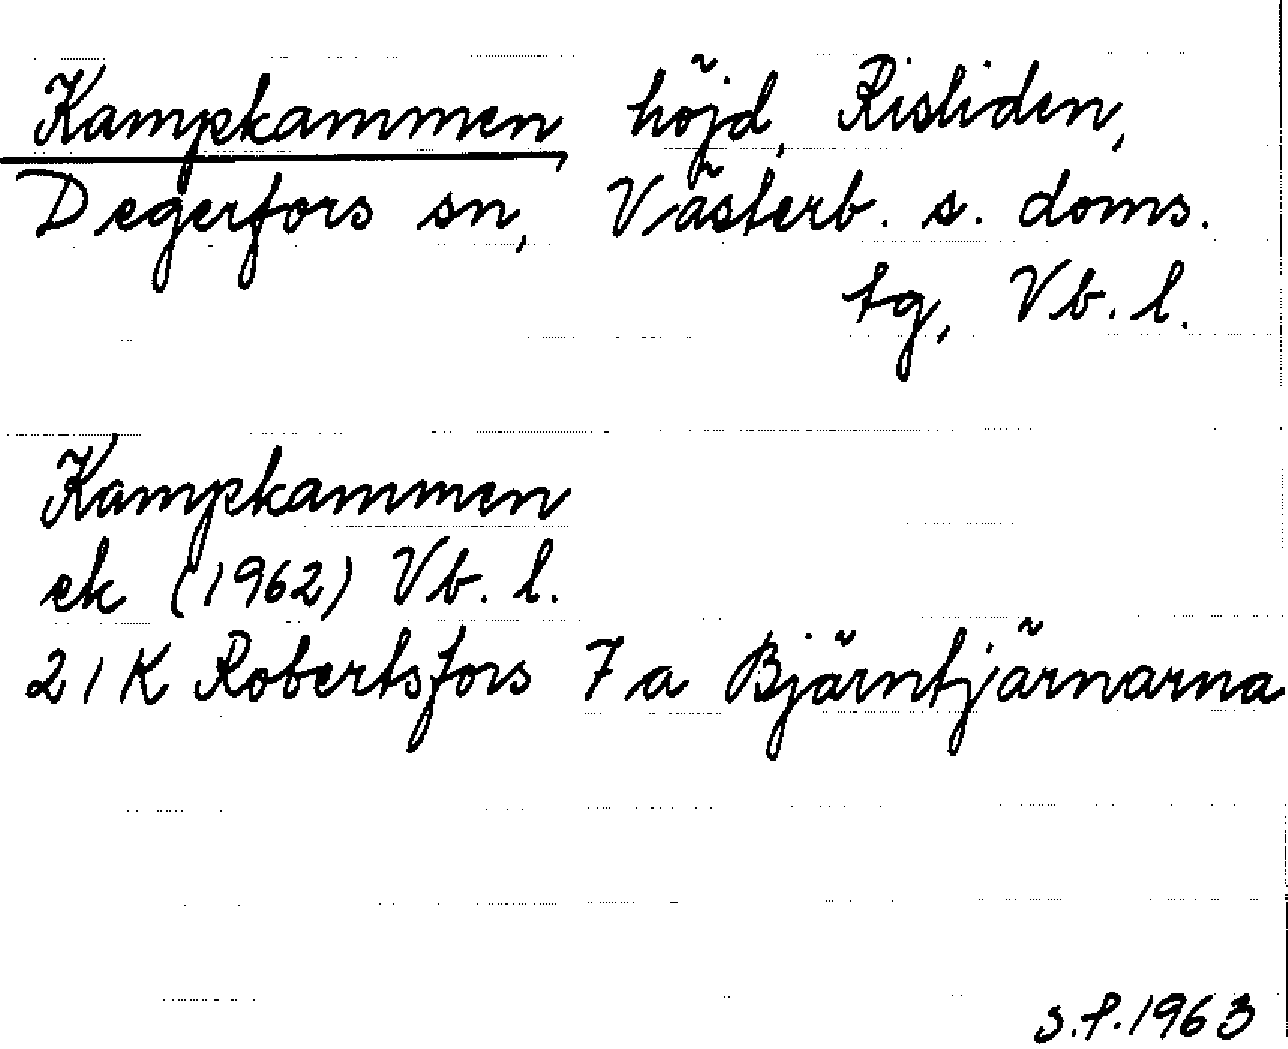 Kampkammen, höjd, Risliden,
Degerfors sn, Västerb. s. doms.
tg, Vb. l.
Kampkammen
ek (1962) Vb. l.
21K Robertsfors 7a Bjärntjärnarna
S.P. 1963